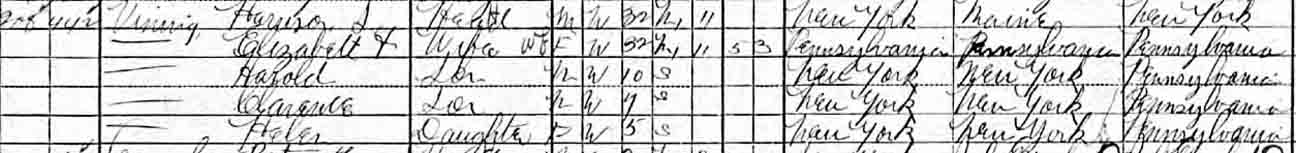 Vining, Harrison L Head M W 32 M1 11 New York Maine New York
— Elizabeth F Wife F W 32 M1 11 5 3 Pennsylvania Pennsylvania Pennsylvania
— Harold Son M W 10 S New York New York Pennsylvania
— Clarence Son M W 7 S New York New York Pennsylvania
— Helen Daughter F W 5 S New York New York Pennsylvania